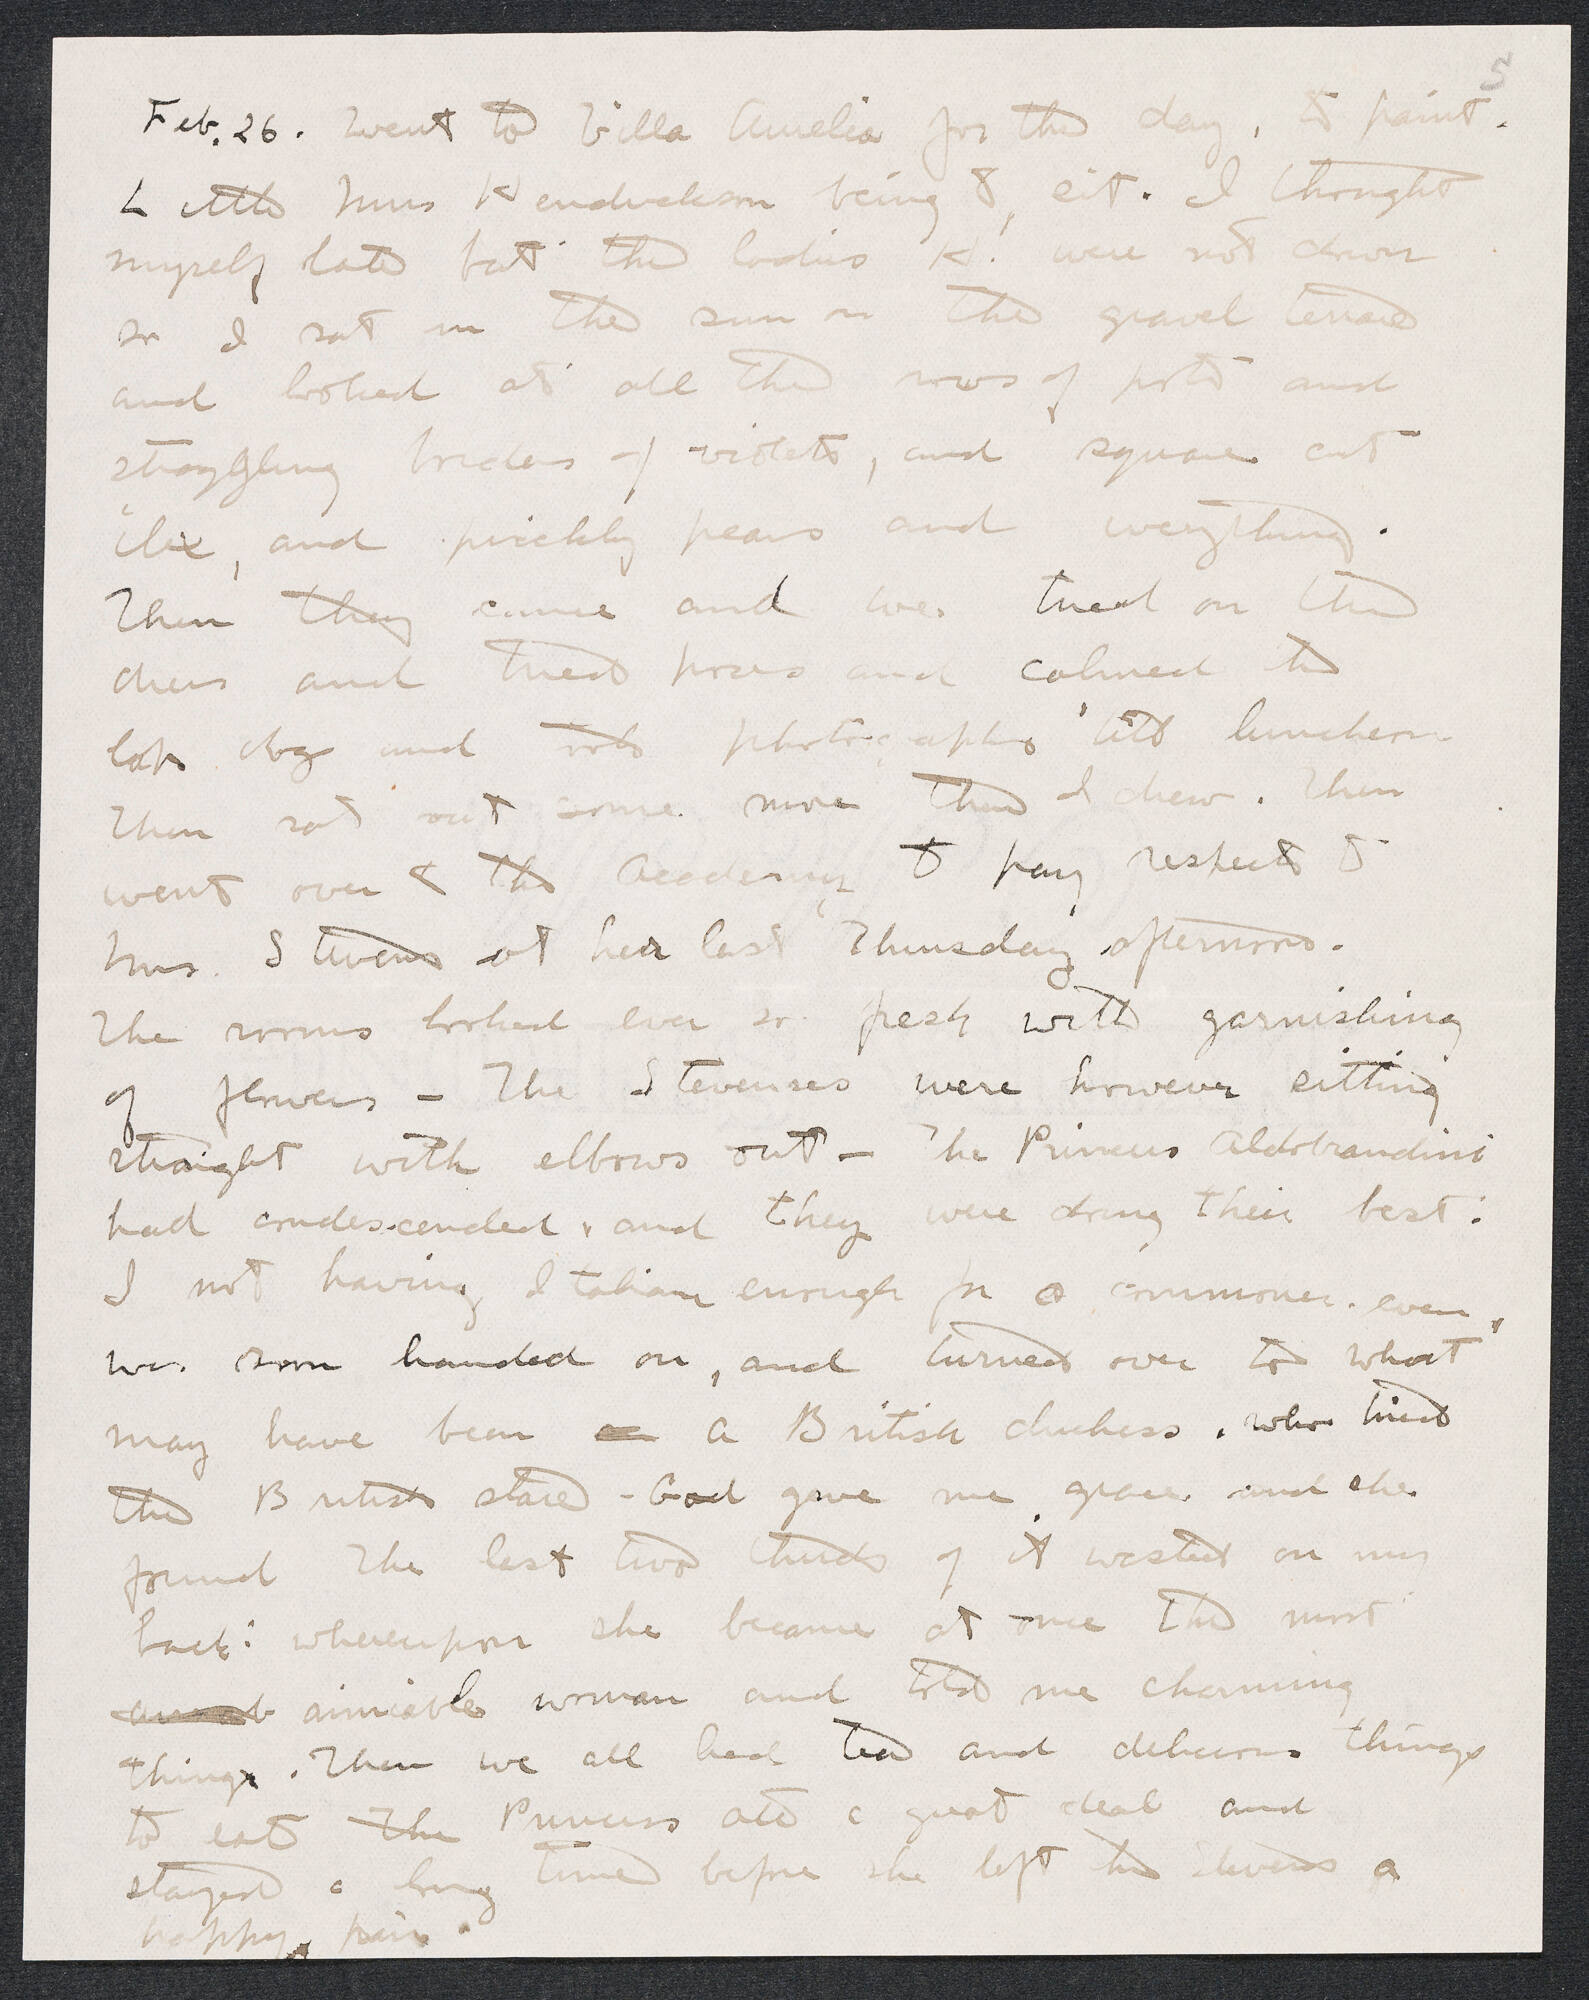 5
Feb. 26. Went to Villa Aurelia for the day, to paint.
Little Miss Hendrickson being to sit. I thought
myself late but the ladies H. were not down
so I sat in the sun on the gravel terrace
and looked at all the rows of pots and
straggling borders of violets, and square cut
ilex, and prickly pears and everything.
Then they came and we tried on the
dress and tried poses and calmed the
lap dog and took photographs till luncheon
Then sat out some more then I drew. Then
went over to the Academy to pay respects to
Mrs. Stevens at her last Thursday afternoon.
The rooms looked ever so fresh with garnishing
of flowers – The Stevenses were however sitting
straight with elbows out – The Princess Aldobrandini
had condescended, and they were doing their best:
I not having Italian enough for a commoner even,
was soon handed on, and turned over to what
may have been a British duchess, who tried
the British stare – God gave me grace and she
found the last two thirds of it wasted on my
back: whereupon she became at once the most
aimiable woman and told me charming
things. Then we all had tea and delicious things
to eat The Princess ate a great deal and
stayed a long time before she left the Stevens a
happy pair.